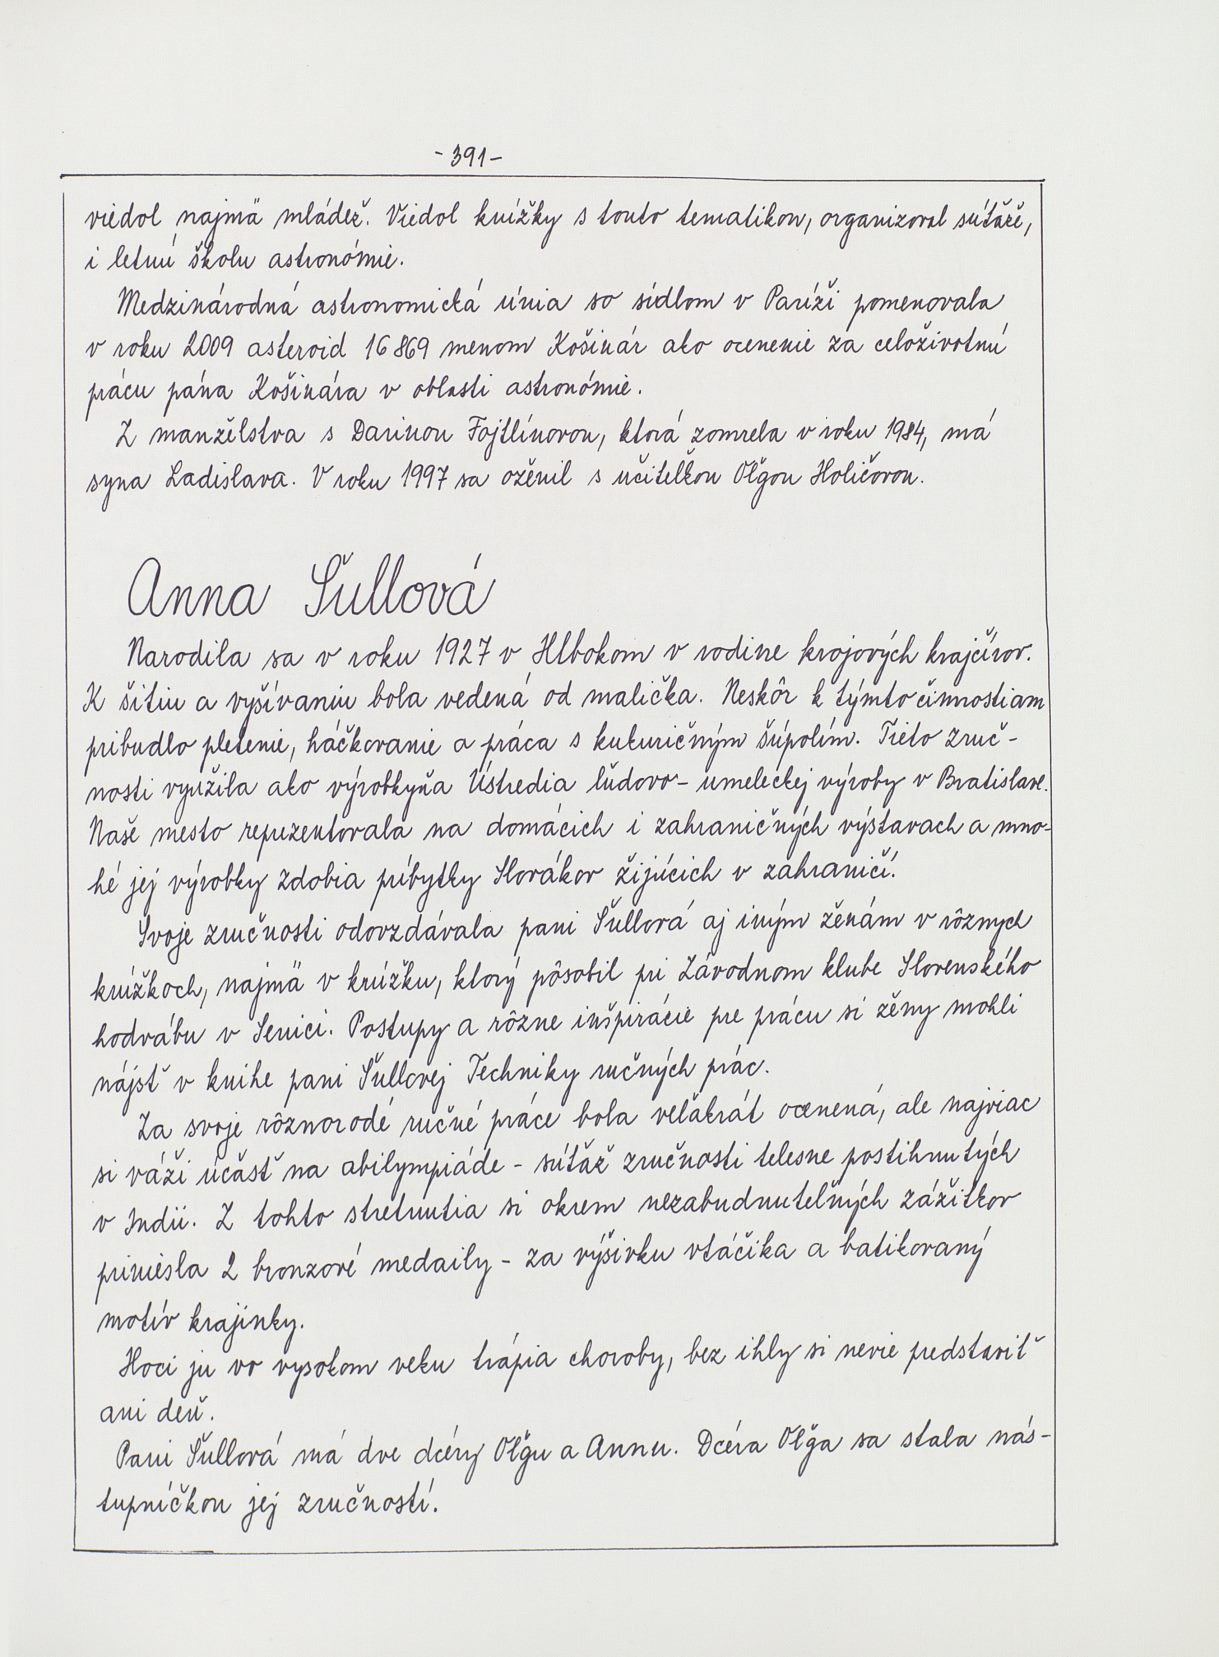 - 391 -
viedol najmä mládež. Viedol krúžky s touto tematikou, organizoval súťaže,
i letnú školu astronómie.
Medzinárodná astronomická únia so sídlom v Paríži pomenovala
v roku 2009 asteroid 16 869 menom Košinár ako ocenenie za celoživotnú
prácu pána Košinára v oblasti astronómie.
Z manželstva s Darinou Fajtlínovou, ktorá zomrela v roku 1984, má
syna Ladislava. V roku 1997 sa oženil s učiteľkou Oľgou Holičovou.
Anna Šullová
Narodila sa v roku 1927 v Hlbokom v rodine krojových krajčírov.
K šitiu a vyšívaniu bola vedená od malička. Neskôr k týmto činnostiam
pribudlo pletenie, háčkovanie a práca s kukuričným šúpolím. Tieto zruč-
nosti využila ako výrobkyňa Ústredia ľudovo - umeleckej výroby v Bratislave.
Naše mesto reprezentovala na domácich i zahraničných výstavach a mno-
hé jej výrobky zdobia príbytky Slovákov žijúcich v zahraničí.
Svoje zručnosti odovzdávala pani Šullová aj iným ženám v rôznych
krúžkoch, najmä v krúžku, ktorý pôsobil pri Závodnom klube Slovenského
hodvábu v Senici. Postupy a rôzne inšpirácie pre prácu si ženy mohli
nájsť v knihe pani Šullovej Techniky ručných prác.
Za svoje rôznorodé ručné práce bola veľakrát ocenená, ale najviac
si váži účasť na abilympiáde - súťaž zručnosti telesne postihnutých
v Indii. Z tohto stretnutia si okrem nezabudnuteľných zážitkov
priniesla 2 bronzové medaily - za výšivku vtáčika a batikovaný
motív krajinky.
Hoci ju vo vysokom veku trápia choroby, bez ihly si nevie predstaviť
ani deň.
Pani Šullová má dve dcéry Oľgu a Annu. Dcéra Oľga sa stala nás-
tupníčkou jej zručností.